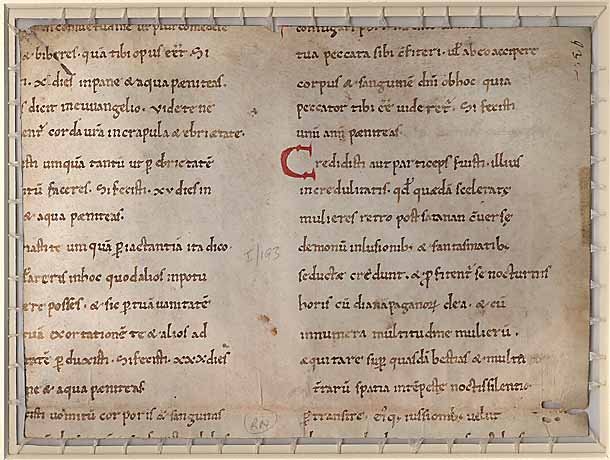 & biberes. quā tibi opus eēt. Si
. x. dies in pane & aqua pæniteas.
dicit in euuangelio. Videte ne
corda ur̄a in crapula & ebriætate.
umquā tantū ut p̱ ebrietatē
faceres. Si fecisti. xv dies in
& aqua pæniteas.
umquā p̱ iactantia ita dico.
in hoc quod alios in potu
posses. & sic p̱ tuā uanitatē
exortationē te & alios ad
p̱duxisti. Si fecisti. xxx dies
& aqua pæniteas
uomitū corporis & sanguinis
tua peccata sibi c̄fiteri. ul̄ ab eo accipere
corpus & sanguinem dn̄i ob hoc quia
peccator tibi eē uideret̄. Si fecisti
unū annū pæniteas.
Credidisti aut particeps fuisti. illius
incredulitatis. qd̄ quædā sceleratę
mulieres retro post satanan c̄uersę
demonū inlusionib; & fantasmatib;
seductæ credunt. & p̱fitent̄ se nocturnis
horis cū diana paganoꝝ dea. & cū
innumera multitudine mulierū.
æquitare sup̱ quasdā bestias & multa
t̄rarū spatia intēpestę noctis silentio.
p̱transire. eiꝰq; iussionib; uelut
I/193
RN